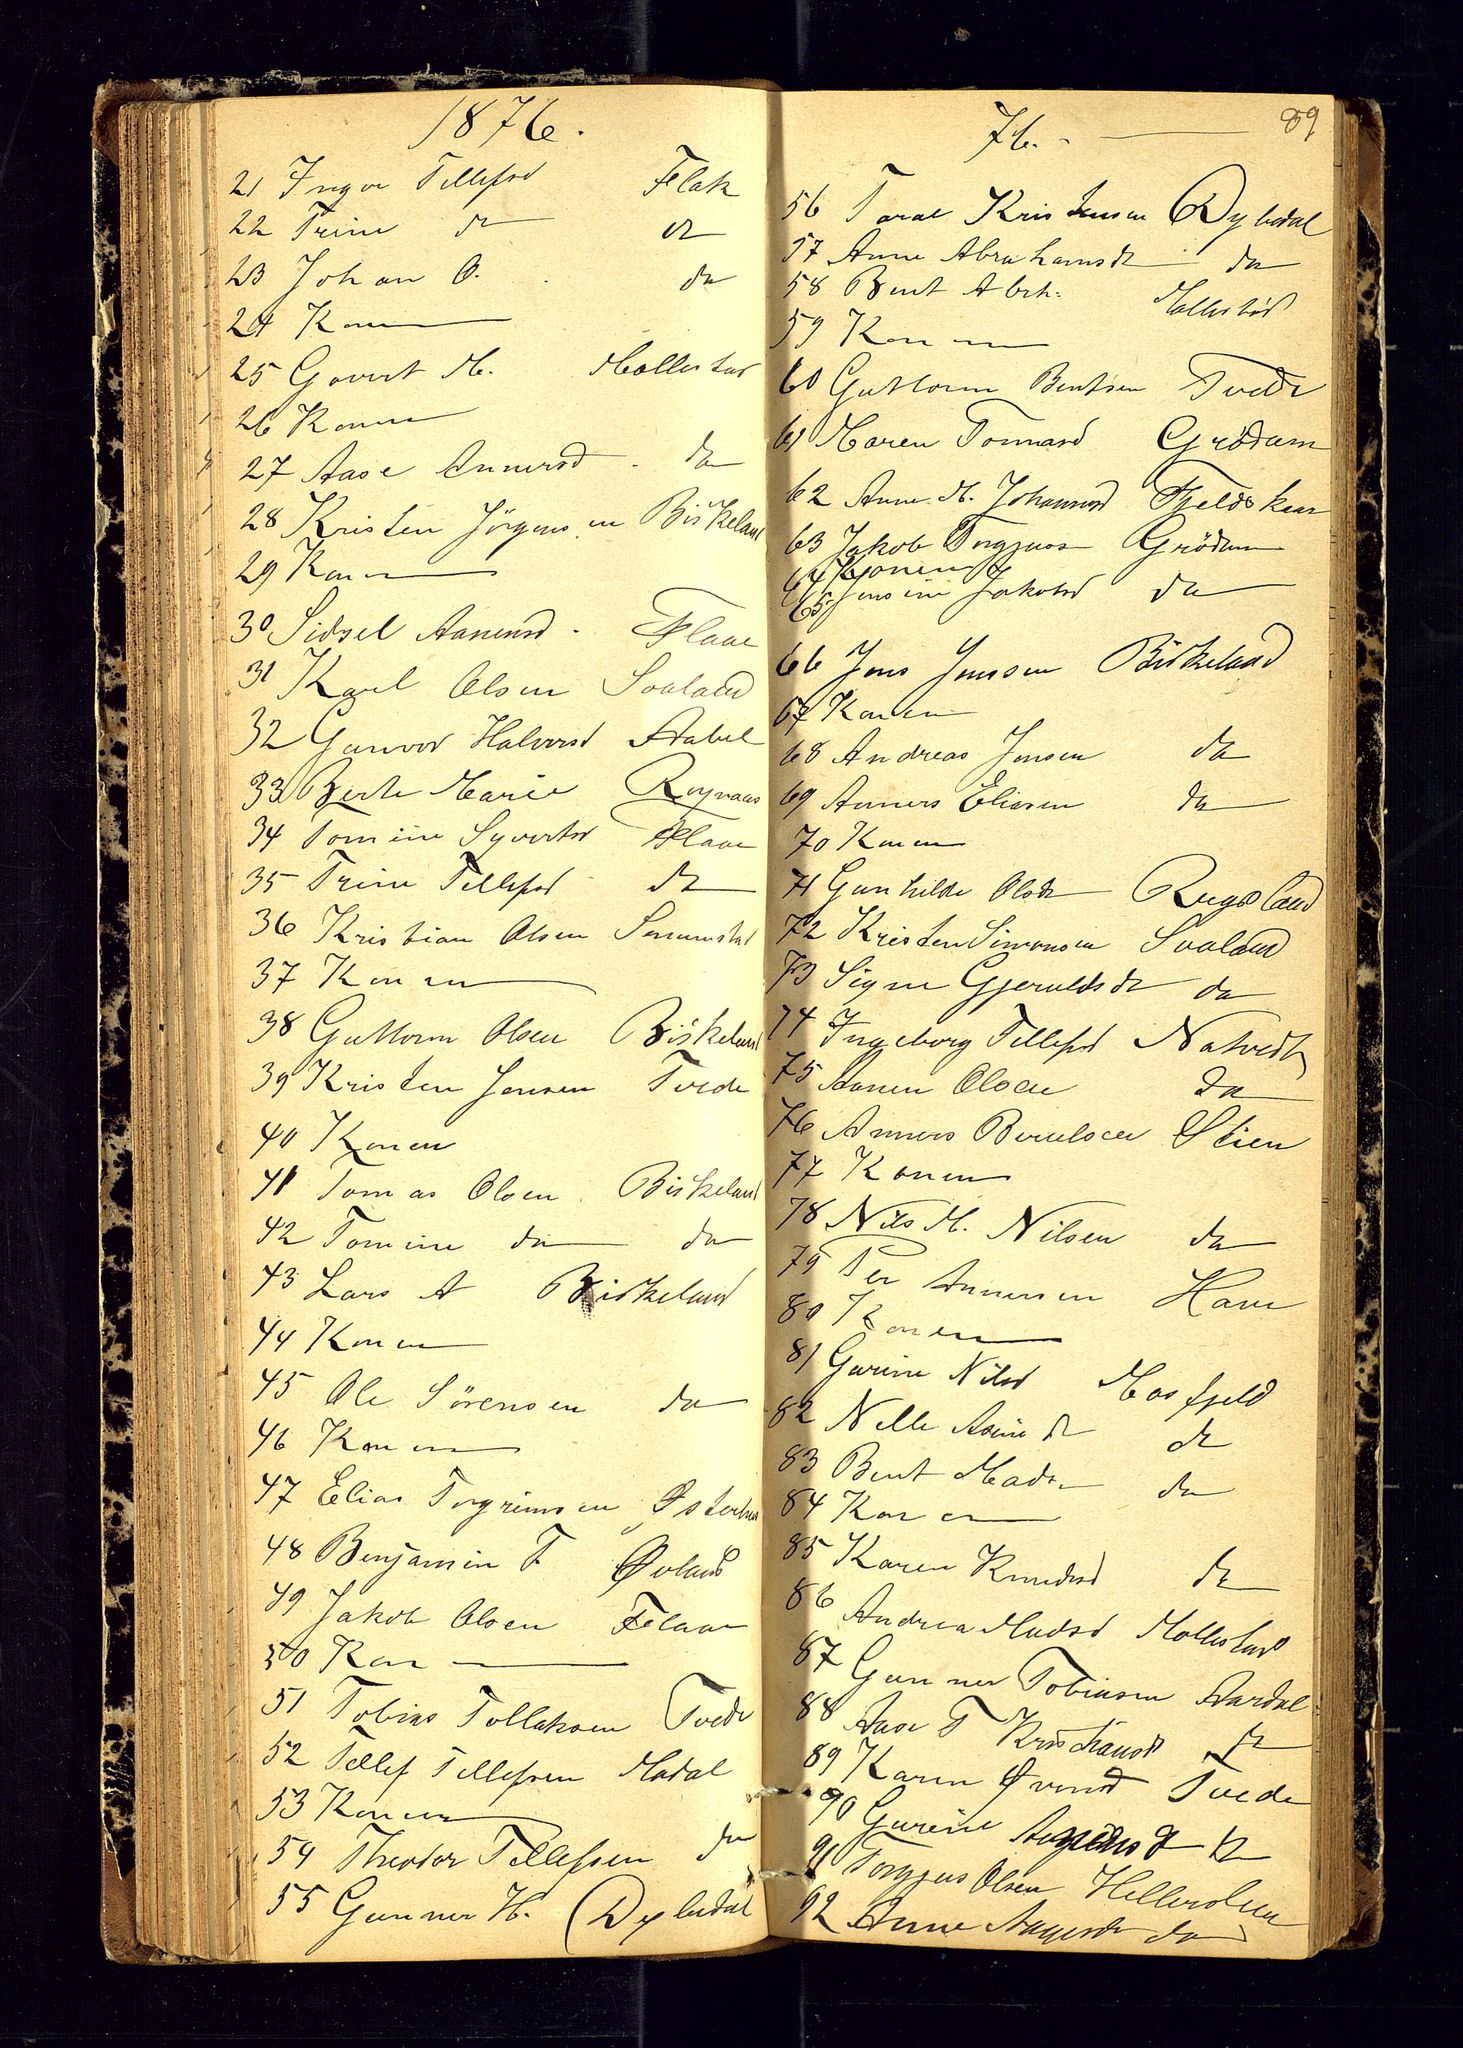 1876.
21 Ingor Tellefsd Flak
22 Trine do do
23 Johan O. do
24 Konen
25 Govert M. Mollestad
26 Konen
27 Aase Annersd. do
28 Kristen Jörgensen Birkeland
29 Konen
30 Sidsel Aanensd. Flaae
31 Karl Olsen Svaland
32 Gunvor Halvorsd Abel
33 Berte Marie Røynaas
34 Tomine Syvertsd Flaae
35 Trine Tellefsd do
36 Kristian Olsen
37 Konen
38 Guttorm Olsen Birkeland
39 Kristen Jensen Tvede
40 Konen
41 Tomas Olsen Birkeland
42 Tomine do do
43 Lars A Birkeland
44 Konen
45 Ole Sörensen do
46 Konen
47 Elias Torgrimsen Østerhus
48 Benjamin T Øvland
49 Jakob Olsen Flaae
50 Konen
51 Tobias Tollaksen Tvede
52 Tellef Tellefsen Modal
53 Konen
54 Theodor Tellefsen do
55 Gunner H. Dybedal
76. 89
56 Taral Kristensen Dybdal
57 Anne Abrahamsdt do
58 Bent Abrh: Mollestad
59 Konen
60 Guttorm Bentsen Tvede
61 Maren Tommasd Grödum
62 Anne M. Johannesd Fjeldskaar
63 Jakob Torgjus Grödum
64 Konen
65 Jensine Jakobsd do
66 Jens Jenssen Birkeland
67 Konen
68 Andreas Jensen do
69 Anners Eliasen do
70 Konen
71 Gunhilde Olsdt Rugsland
72 Kristen Simonsen Svaland
73 Signe Gjeruldsdt do
74 Ingeborg Tellefsd Natvedt
75 Aanen Olsen do
76 Anners Berulsen Stien
77 Konen
78 Nils M. Nilsen do
79 Per Annersen Have
80 Konen
81 Gurine Nilsd Mosfjeld
82 Nelle do
83 Bent Mads do
84 Konen
85 Karen Knudsd do
86 Andrea Madsd Mollestad
87 Gunner Tobiasen Aardal
88 Aase T Kristiansdt do
89 Karen Øvensd Tvede
90 Gurine do
91 Torgjus Olsen Hellersleen
92 Anne Aagesdt do